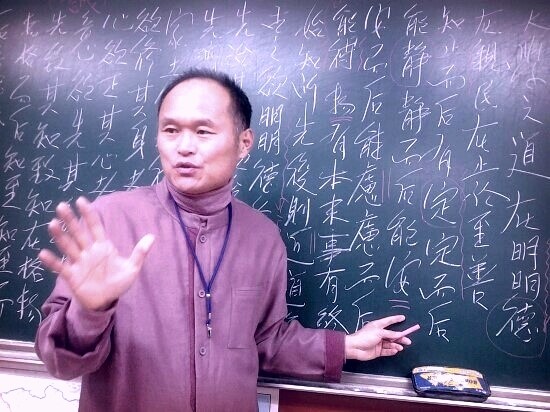 大學之道在明明德
在親民在止於至善
知止而后有定定而后
能靜靜而后能安
安而后能慮慮而后
能得物有本末事有終
始知所先後則近道
之欲明明德
先治
先
家
欲修其身者
心欲正其心者
先致其知致知在格物
格而后知至知至而